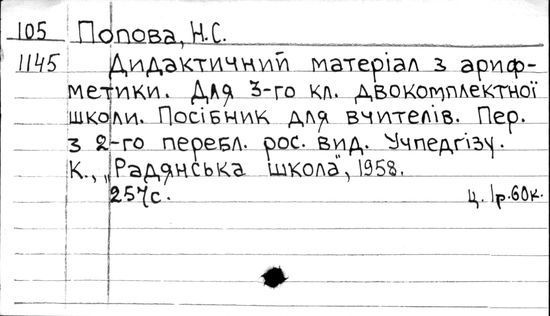 105 Попова, Н.С.
1145 Дидактичний матеріал з ариф-
метики. Для 3-го кл. двокомплектної
школи. Посібник для вчителів. Пер.
з 2-го перебл. рос. вид. Учпедгізу.
К., „Радянська школа", 1958.
257с. ц. 1р.60к.